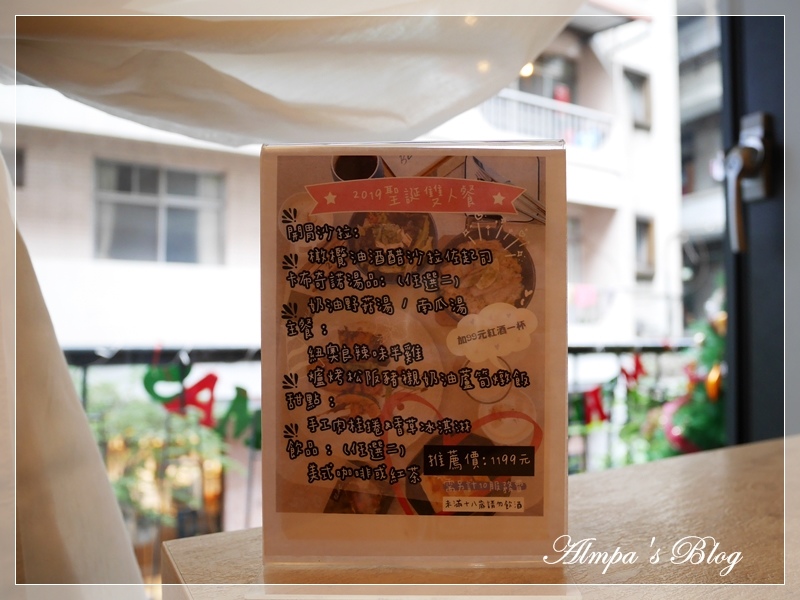 2019聖誕雙人餐
開胃沙拉：
橄欖油酒醋沙拉佐起司
卡布奇諾湯品：（任選二）
奶油野菇湯 / 南瓜湯
主餐：
紐奧良辣味半雞
爐烤松阪豬襯奶油蘆筍燉飯
甜點：
手工肉桂捲&香草冰淇淋
飲品：（任選二）
美式咖啡或紅茶
加99元紅酒一杯
推薦價：1199元
未滿十八歲請勿飲酒
Almpa's Blog